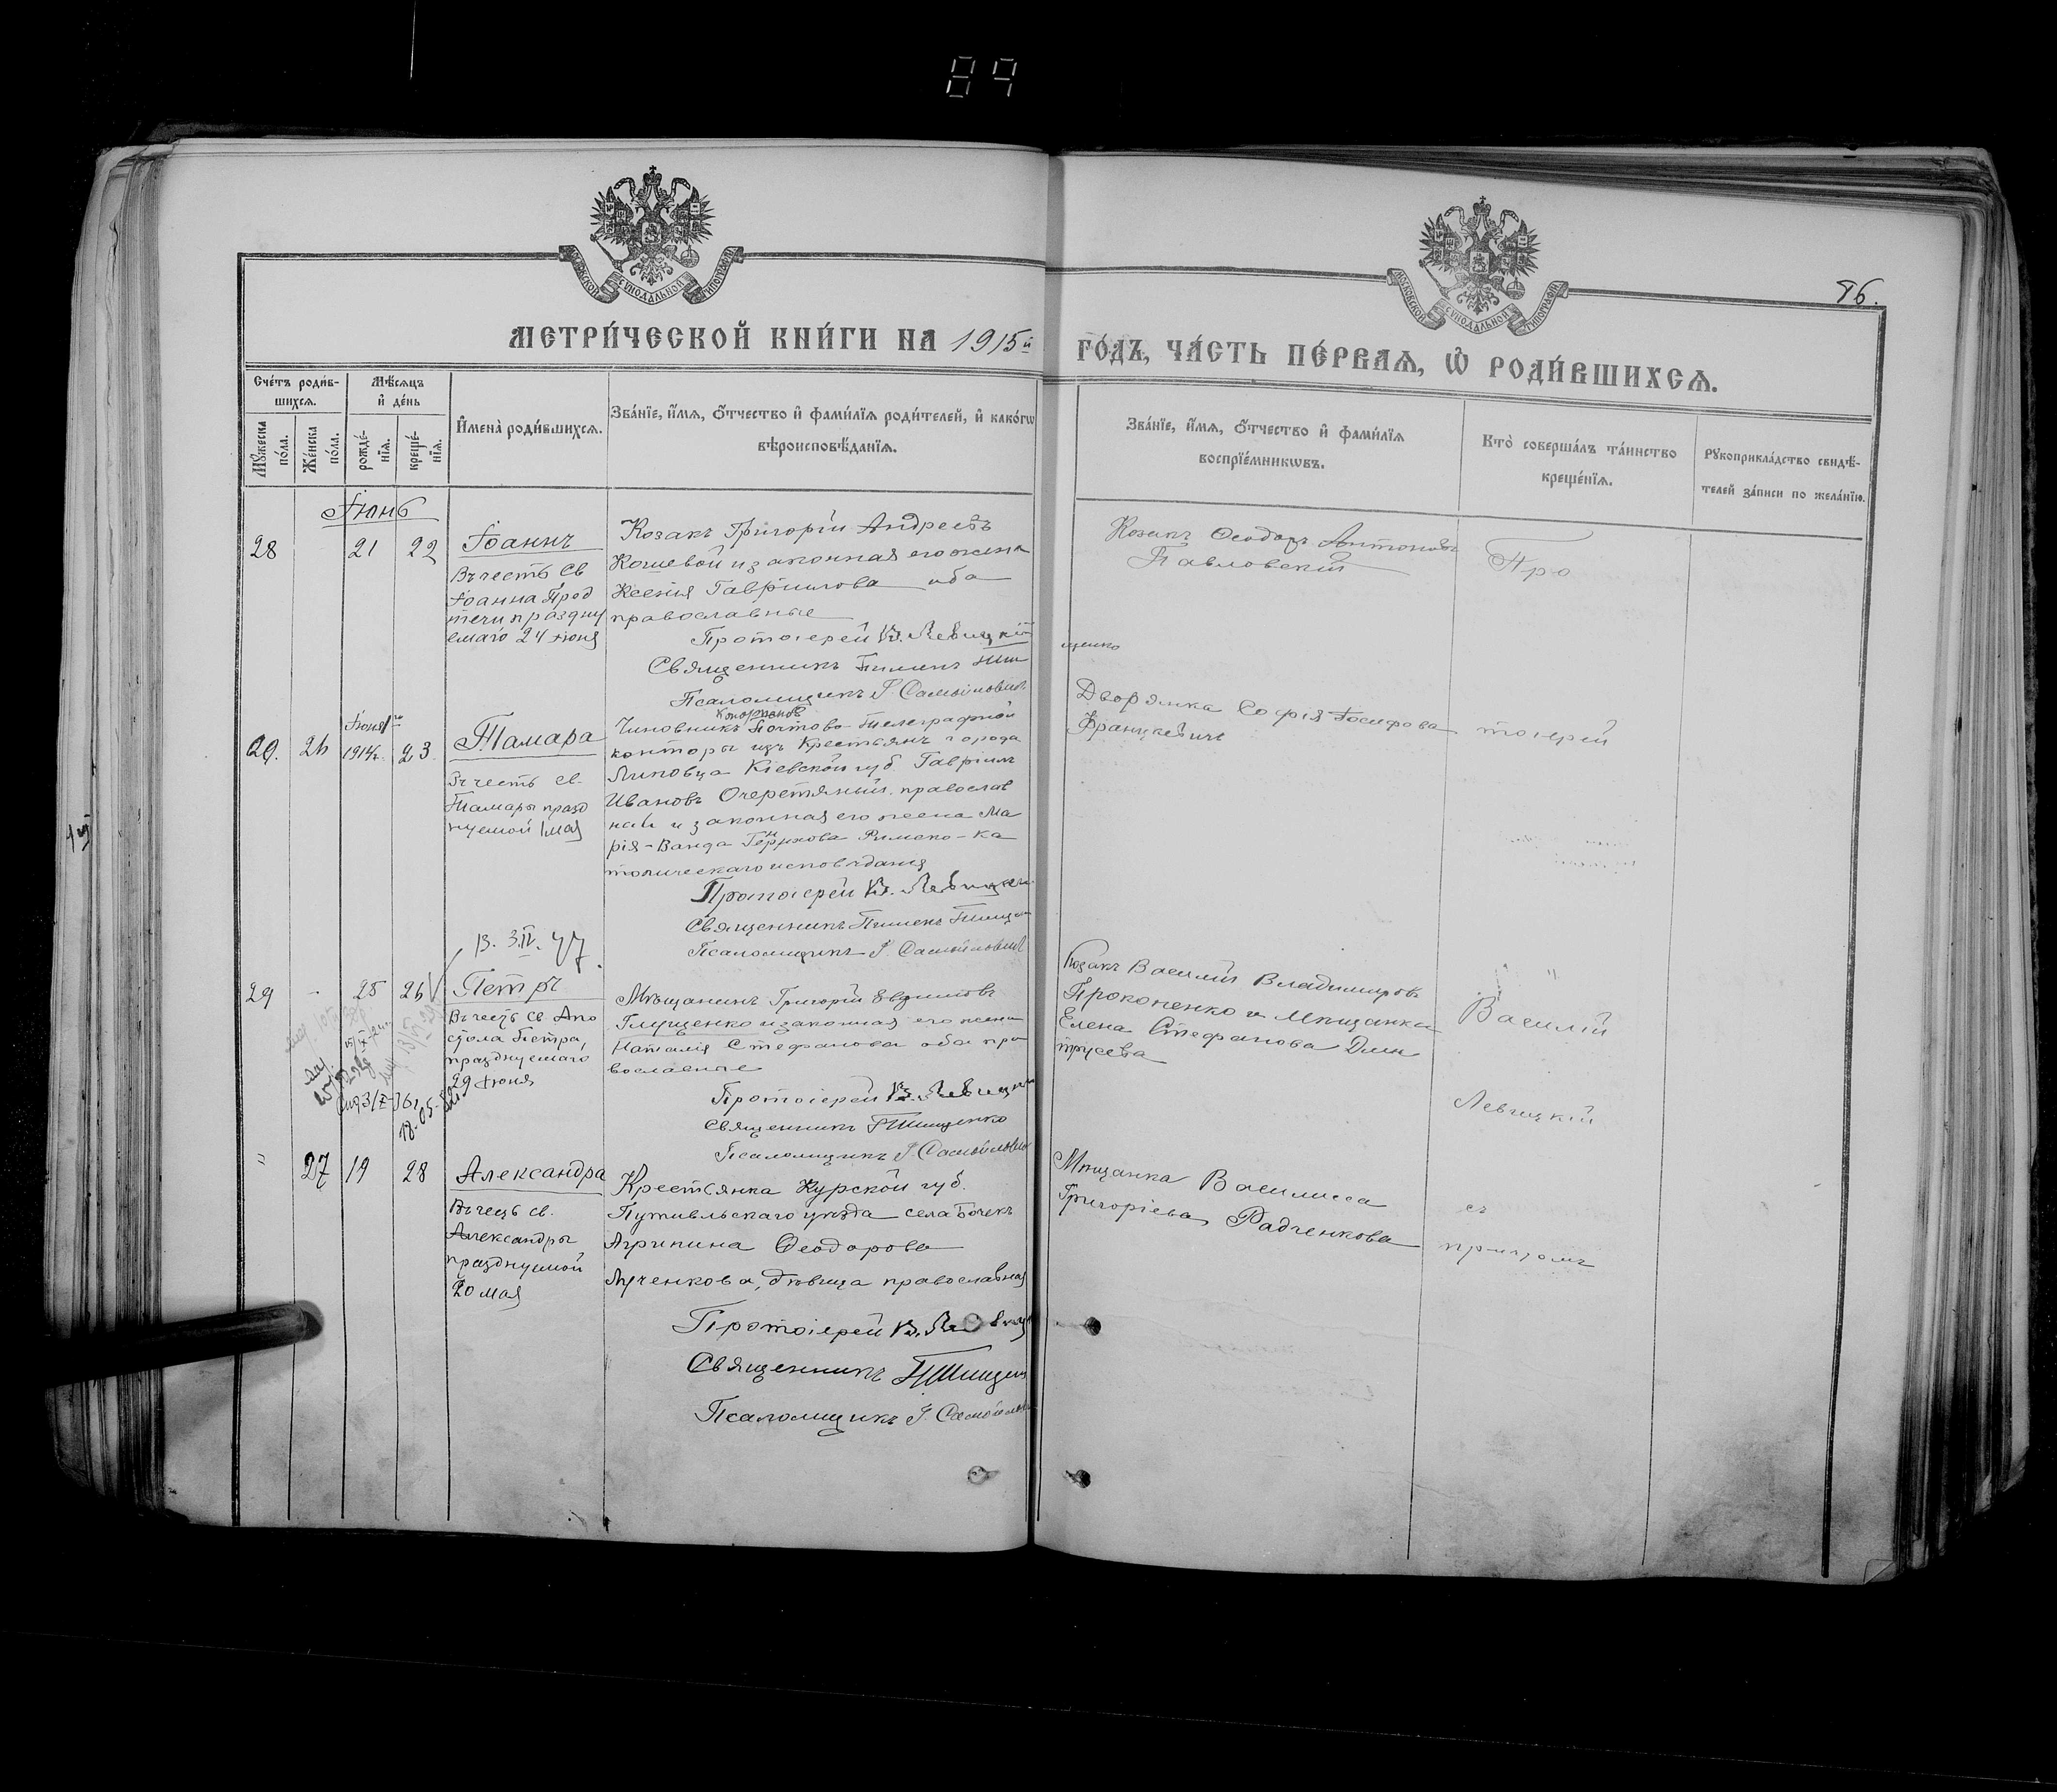 89
МОСКОВСКОЙ СУНОДАЛЬНОЙ ТИПОГРАФІИ
МОСКОВСКОЙ СУНОДАЛЬНОЙ ТИПОГРАФІИ
86.
МЕТРИ́ЧЕСКОЙ КНИ́ГИ НА 1915й ГО́ДЪ, ЧА́СТЬ ПЕ́РВАѦ, Ѡ҆ РОДИ́ВШИХСѦ.
Счéтъ роди́в-
шихсѧ.
Мѣ́сѧцъ
и҆ дéнь
Мꙋ́жеска
пóла.
Жéнска
пóла.
рождé-
нїѧ.
крещé-
нїѧ.
И҆мена̀ роди́вшихсѧ.
Звáнїе, и҆́мѧ, ѻ҆́тчество и҆ фами́лїѧ роди́телей, и҆ какóгѡ
вѣроисповѣ́данїѧ.
Звáнїе, и҆́мѧ, ѻ҆́тчество и҆ фами́лїѧ
воспрїéмникѡвъ.
Ктò совершáлъ тáинство
крещéнїѧ.
Рꙋкоприклáдство свидѣ́-
телей зáписи по желáнїю.
Іюнь
28 21 22
Іоаннъ
Въ честь Св
Іоанна Пред
течи праздну
емаго 24 Іюня
Козакъ Григорій Андреевъ
Кошевой и законная его жена
Ксенія Гавріилова оба
православные
Протоіерей В. Левицкій
Священникъ Пименъ Тищенко
Псаломщикъ Самойлович
Козакъ Ѳеодоръ Антоновъ
Павловскій
Про
26 Іюня 1го
1914г. 23
Тамара
Въ честь св.
Тамары празд
нуемой 1 мая
Чиновникъ Почтово-Телеграфной
конторы изъ Крестьянъ города
Липовца Кіевской губ Гавріилъ
Ивановъ Очеретяный, православ
ный и законная его жена Ма
рія-Ванда Римско-ка
толическаго исповѣданія
Протоіерей В. Левицкій
Священникъ Пименъ Тищенко
Псаломщикъ Самойлович
Дворянка Софія Іосифова
Францкевичъ
тоіерей
В. 3.IV.47.
29 - 25 26
Петръ
Въ честь св Апо
стола Петра,
празднуемаго
29 Іюня
Мѣщанинъ Григорій Евфимовъ
Глущенко и законная его жена
Наталія Стефанова оба пра
вославные
Протоіерей В. Левицкій
Священникъ Тищенко
Псаломщикъ Самойлович
Козакъ Василій Владимировъ
Прокопенко и Мѣщанка
Елена Стефанова Дми
трусева
Василій
Левицкій
" 27 19 28
Александра
Въ честь св.
Александры
празднуемой
20 мая
Крестьянка Курской губ.
Путивльскаго уѣзда села Бочекъ
Агрипина Ѳеодорова
Лученкова, дѣвица православная
Протоіерей В. Левицкій
Священникъ Тищенко
Псаломщикъ Самойлович
Мѣщанка Василисса
Григоріева Радченкова
съ
причтомъ